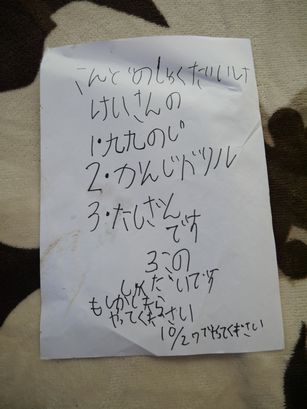 こんどのしゅくだいは
けいさんの
1.九九のじ
2.かんじドリル
3.たしざん
です
3この
しゅくだいです
もしかしたら
やってください
10/27でやってください